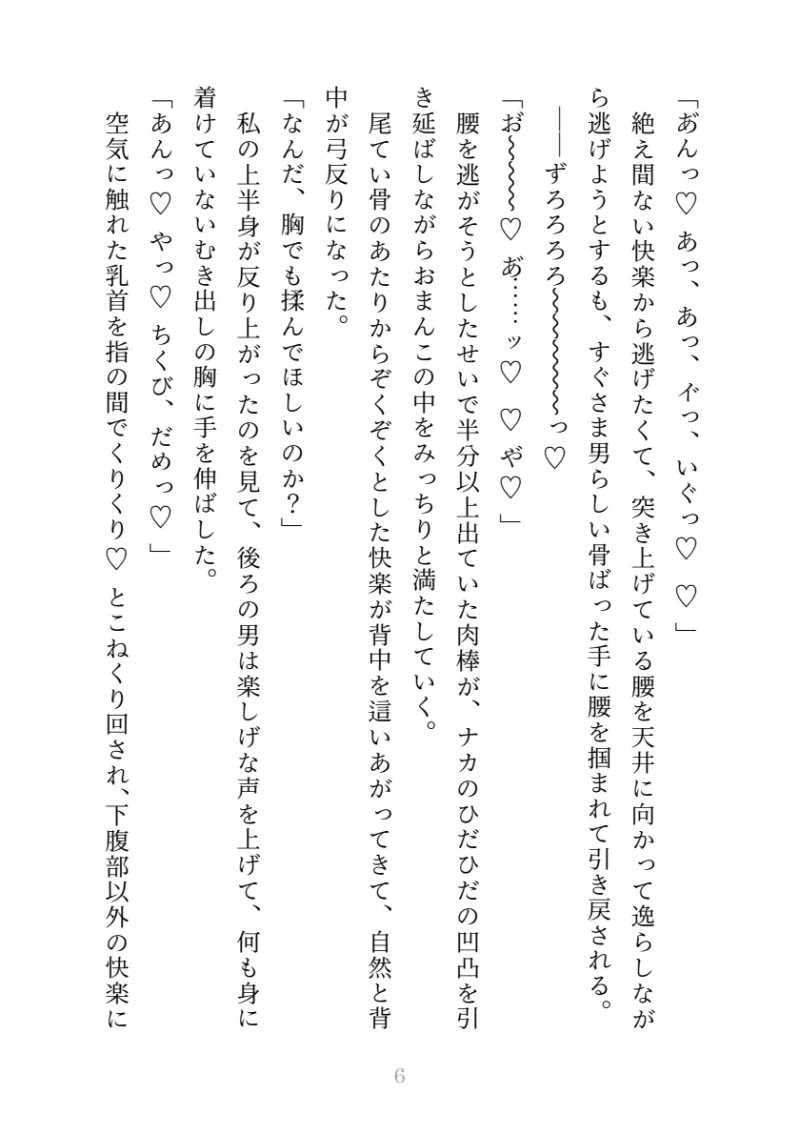 「あ゙んっ♡ あっ、あっ、イ゙っ、いぐっ♡ ♡ 」
絶え間ない快楽から逃げたくて、突き上げている腰を天井に向かって逸らしなが
ら逃げようとするも、すぐさま男らしい骨ばった手に腰を掴まれて引き戻される。
――ずろろろろ〜〜〜〜〜〜っ♡
「お゙〜〜〜〜♡ あ゙……ッ♡ ♡ や゙♡ 」
腰を逃がそうとしたせいで半分以上出ていた肉棒が、ナカのひだひだの凹凸を引
き延ばしながらおまんこの中をみっちりと満たしていく。
尾てい骨のあたりからぞくぞくとした快楽が背中を這いあがってきて、自然と背
中が弓反りになった。
「なんだ、胸でも揉んでほしいのか？」
私の上半身が反り上がったのを見て、後ろの男は楽しげな声を上げて、何も身に
着けていないむき出しの胸に手を伸ばした。
「あんっ♡ やっ♡ ちくび、だめっ♡ 」
空気に触れた乳首を指の間でくりくり♡ とこねくり回され、下腹部以外の快楽に
6